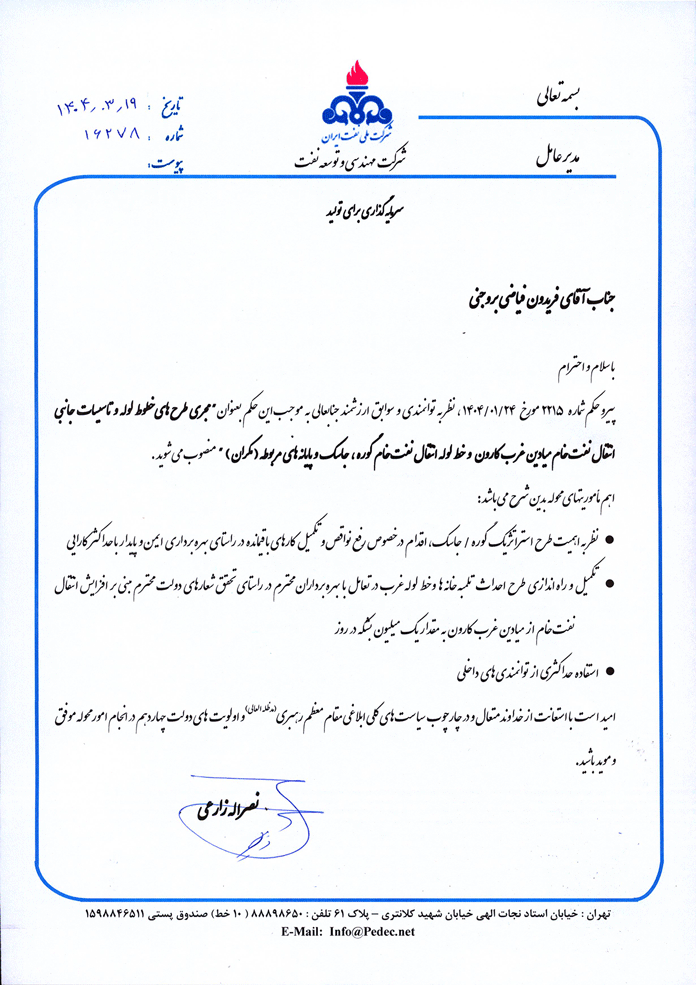 بسمه تعالی
شرکت ملی نفت ایران
شرکت مهندسی و توسعه نفت
مدیر عامل
تاریخ : ۱۴۰۴/۰۳/۱۹
شماره : ۱۶۲۷۸
پیوست:
سرمایه گذاری برای تولید
جناب آقای فریدون فیاضی بروجنی
باسلام و احترام
پیرو حکم شماره ۲۲۱۵ مورخ ۱۴۰۴/۰۱/۲۴ ، نظر به توانمندی و سوابق ارزشمند جنابعالی به موجب این حکم بعنوان "مجری طرح های خطوط لوله و تاسیسات جانبی
انتقال نفت خام میادین غرب کارون و خط لوله انتقال نفت خام گوره ، جاسک و پایانه های مربوطه (مکران) " منصوب می شوید .
اهم مأموریتهای محوله بدین شرح می باشد:
● نظر به اهمیت طرح استراتژیک گوره / جاسک، اقدام در خصوص رفع نواقص و تکمیل کارهای باقیمانده در راستای بهره برداری ایمن و پایدار با حداکثر کارایی
● تکمیل و راه اندازی طرح احداث تلمبه خانه ها و خط لوله غرب در تعامل با بهره برداران محترم در راستای تحقق شعارهای دولت محترم مبنی بر افزایش انتقال
نفت خام از میادین غرب کارون به مقدار یک میلیون بشکه در روز
● استفاده حداکثری از توانمندی های داخلی
امید است با استعانت از خداوند متعال و در چارچوب سیاست های کلی ابلاغی مقام معظم رهبری (مدظله العالی) و اولویت های دولت چهاردهم در انجام امور محوله موفق
و موید باشید.
نصراله زارعی
تهران : خیابان استاد نجات الهی خیابان شهید کلانتری – پلاک ۶۱ تلفن : ۸۸۸۹۸۶۵۰ ( ۱۰ خط) صندوق پستی ۱۵۹۸۸۴۶۵۱۱
E-Mail: Info@Pedec.net